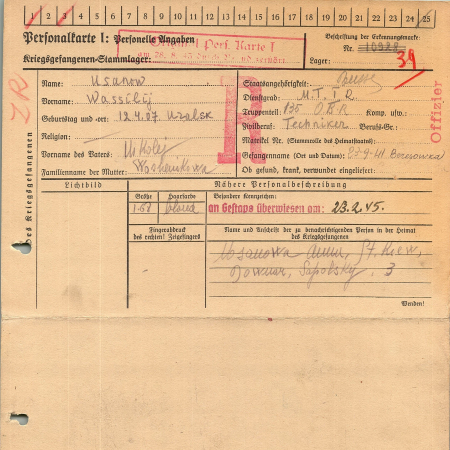 1 2 3 4 5 6 7 8 9 10 11 12 13 14 15 16 17 18 19 20 21 22 23 24 25
Personalkarte I: Personelle Angaben
Kriegsgefangenen-Stammlager:
Beschriftung der Erkennungsmarke:
Nr. 10988
Lager:
39
ZR
Offizier
des Kriegsgefangenen
Name: Usanow
Vorname: Wassilij
Geburtstag und -ort: 12.4.07. Uralsk
Religion:
Vorname des Vaters: Nikolej
Familienname der Mutter:
Staatsangehörigkeit:
Dienstgrad: M.T.I R
Truppenteil: 135 Komp. usw.:
Zivilberuf: Techniker Berufs-Gr.:
Matrikel Nr. (Stammrolle des Heimatstaates):
Gefangennahme (Ort und Datum): 27-9-41 Borosowka
Ob gesund, krank, verwundet eingeliefert:
Lichtbild
Nähere Personalbeschreibung
Größe Haarfarbe
1.67 blond
Besondere Kennzeichen:
an Gestapo überwiesen am: 23.2.45.
Fingerabdruck
des rechten! Zeigefingers
Name und Anschrift der zu benachrichtigenden Person in der Heimat
des Kriegsgefangenen
Usanowa Anna, St. Kiew,
3
Wenden!